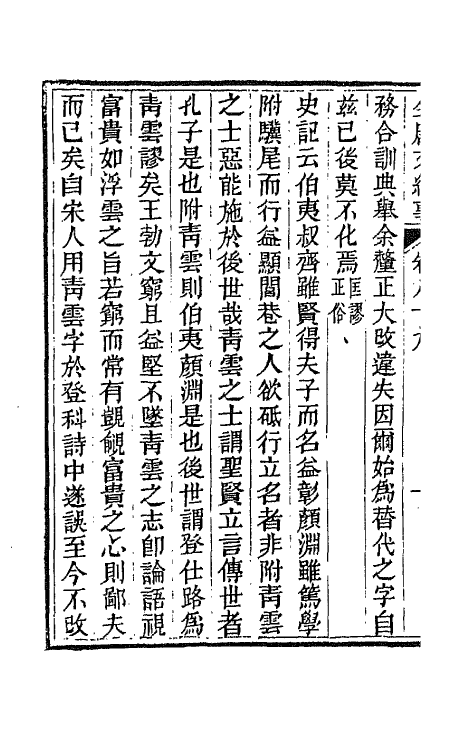 務合訓典舉余釐正大改違失因爾始為替代之字自
茲已後莫不化焉匡謬正俗、
史記云伯夷叔齊雖賢得夫子而名益彰顏淵雖篤學
附驥尾而行益顯閭巷之人欲砥行立名者非附青雲
之士惡能施於後世哉青雲之士謂聖賢立言傳世者
孔子是也附青雲則伯夷顏淵是也後世謂登仕路為
青雲謬矣王勃文窮且益堅不墜青雲之志卽論語視
富貴如浮雲之旨若窮而常有覬覦富貴之心則鄙夫
而已矣自宋人用青雲字於登科詩中遂誤至今不改